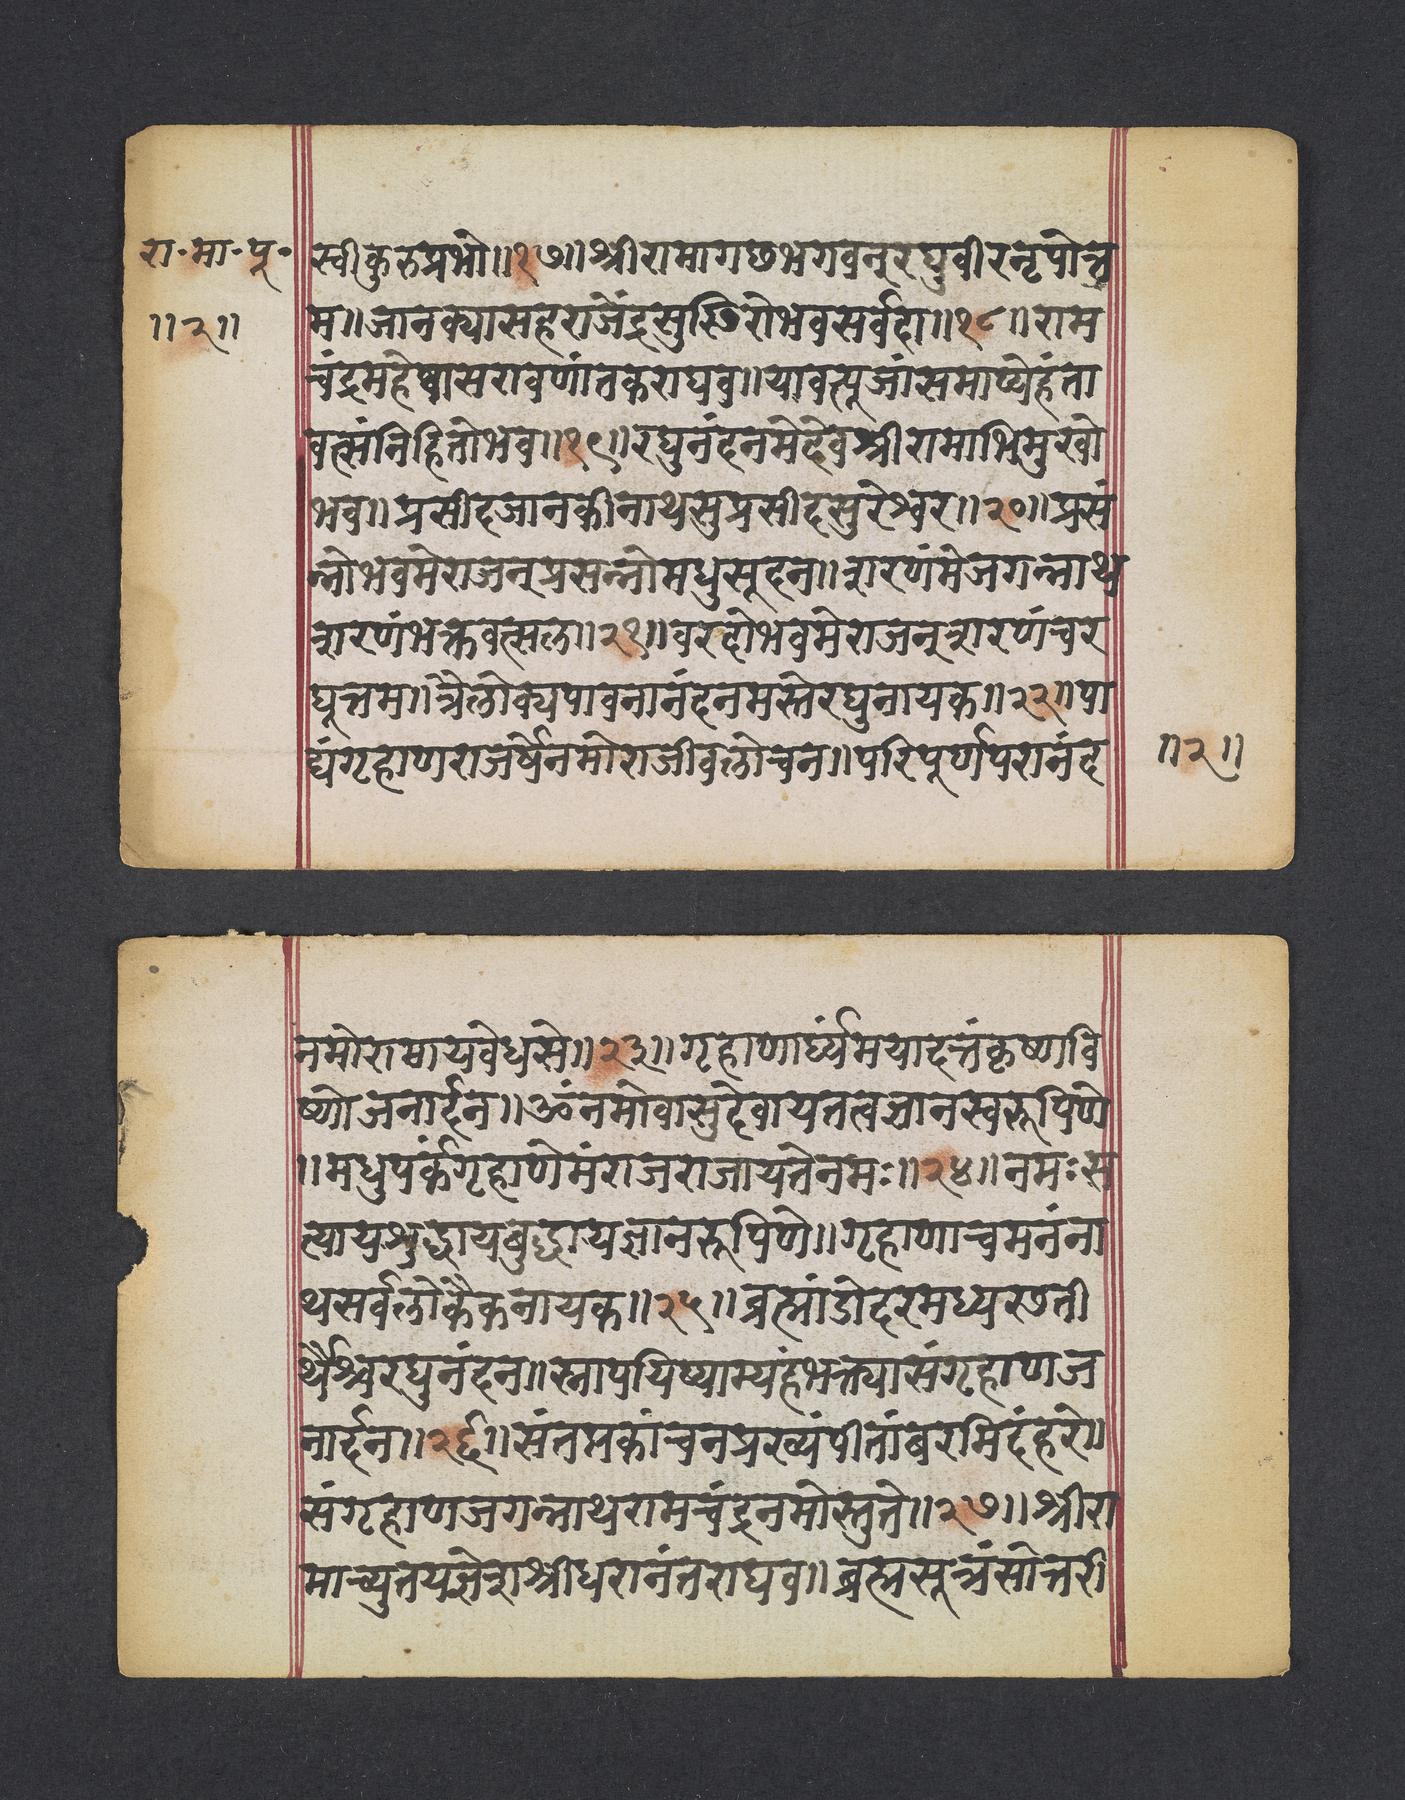 रा॰मा॰पू॰
॥२॥
स्वीकुरुप्रभो॥१७॥श्रीरामागछभगवन्रघुवीरनृपोत्त
म॥जानक्यासहराजेंद्रसुस्थिरोभवसर्वदा॥१८॥राम
चंद्रमहेष्वासरावणांतकराघव॥यावत्पूजांसमाप्येहंता
वत्संनिहितोभव॥१९॥रघुनंदनमेदेवश्रीरामाभिमुखो
भव॥प्रसीदजानकीनाथसुप्रसीदसुरेश्वर॥२०॥प्रसं
न्नोभवमेराजन्प्रसन्नोमधुसूदन॥शरणंमेजगन्नाथ
शरणंभक्तवत्सल॥२१॥वरदोभवमेराजन्शरणंचर
घूत्तम॥त्रैलोक्यपावनानंदनमस्तेरघुनायक॥२२॥पा
द्यंगृहाणराजर्षेनमोराजीवलोचन॥परिपूर्णपरानंद
॥२॥
नमोरामायवेधसे॥२३॥गृहाणार्घ्यंमयादत्तंकृष्णवि
ष्णोजनार्दन॥ॐनमोवासुदेवायतत्वज्ञानस्वरूपिणे
॥मधुपर्कंगृहाणेमंराजराजायतेनमः॥२४॥नमःस
त्यायशुद्धायबुद्धायज्ञानरूपिणे॥गृहाणाचमनंना
थसर्वलोकैकनायक॥२५॥ब्रह्मांडोदरमध्यस्थती
र्थैश्वरघुनंदन॥स्नापयिष्याम्यहंभक्त्यासंगृहाणज
नार्दन॥२६॥संतप्तकांचनप्रख्यंपीतांबरमिदंहरे॥
संगृहाणजगन्नाथरामचंद्रनमोस्तुते॥२७॥श्रीरा
माच्युतयज्ञेशश्रीधरानंतराघव॥ब्रह्मसूत्रंसोत्तरी